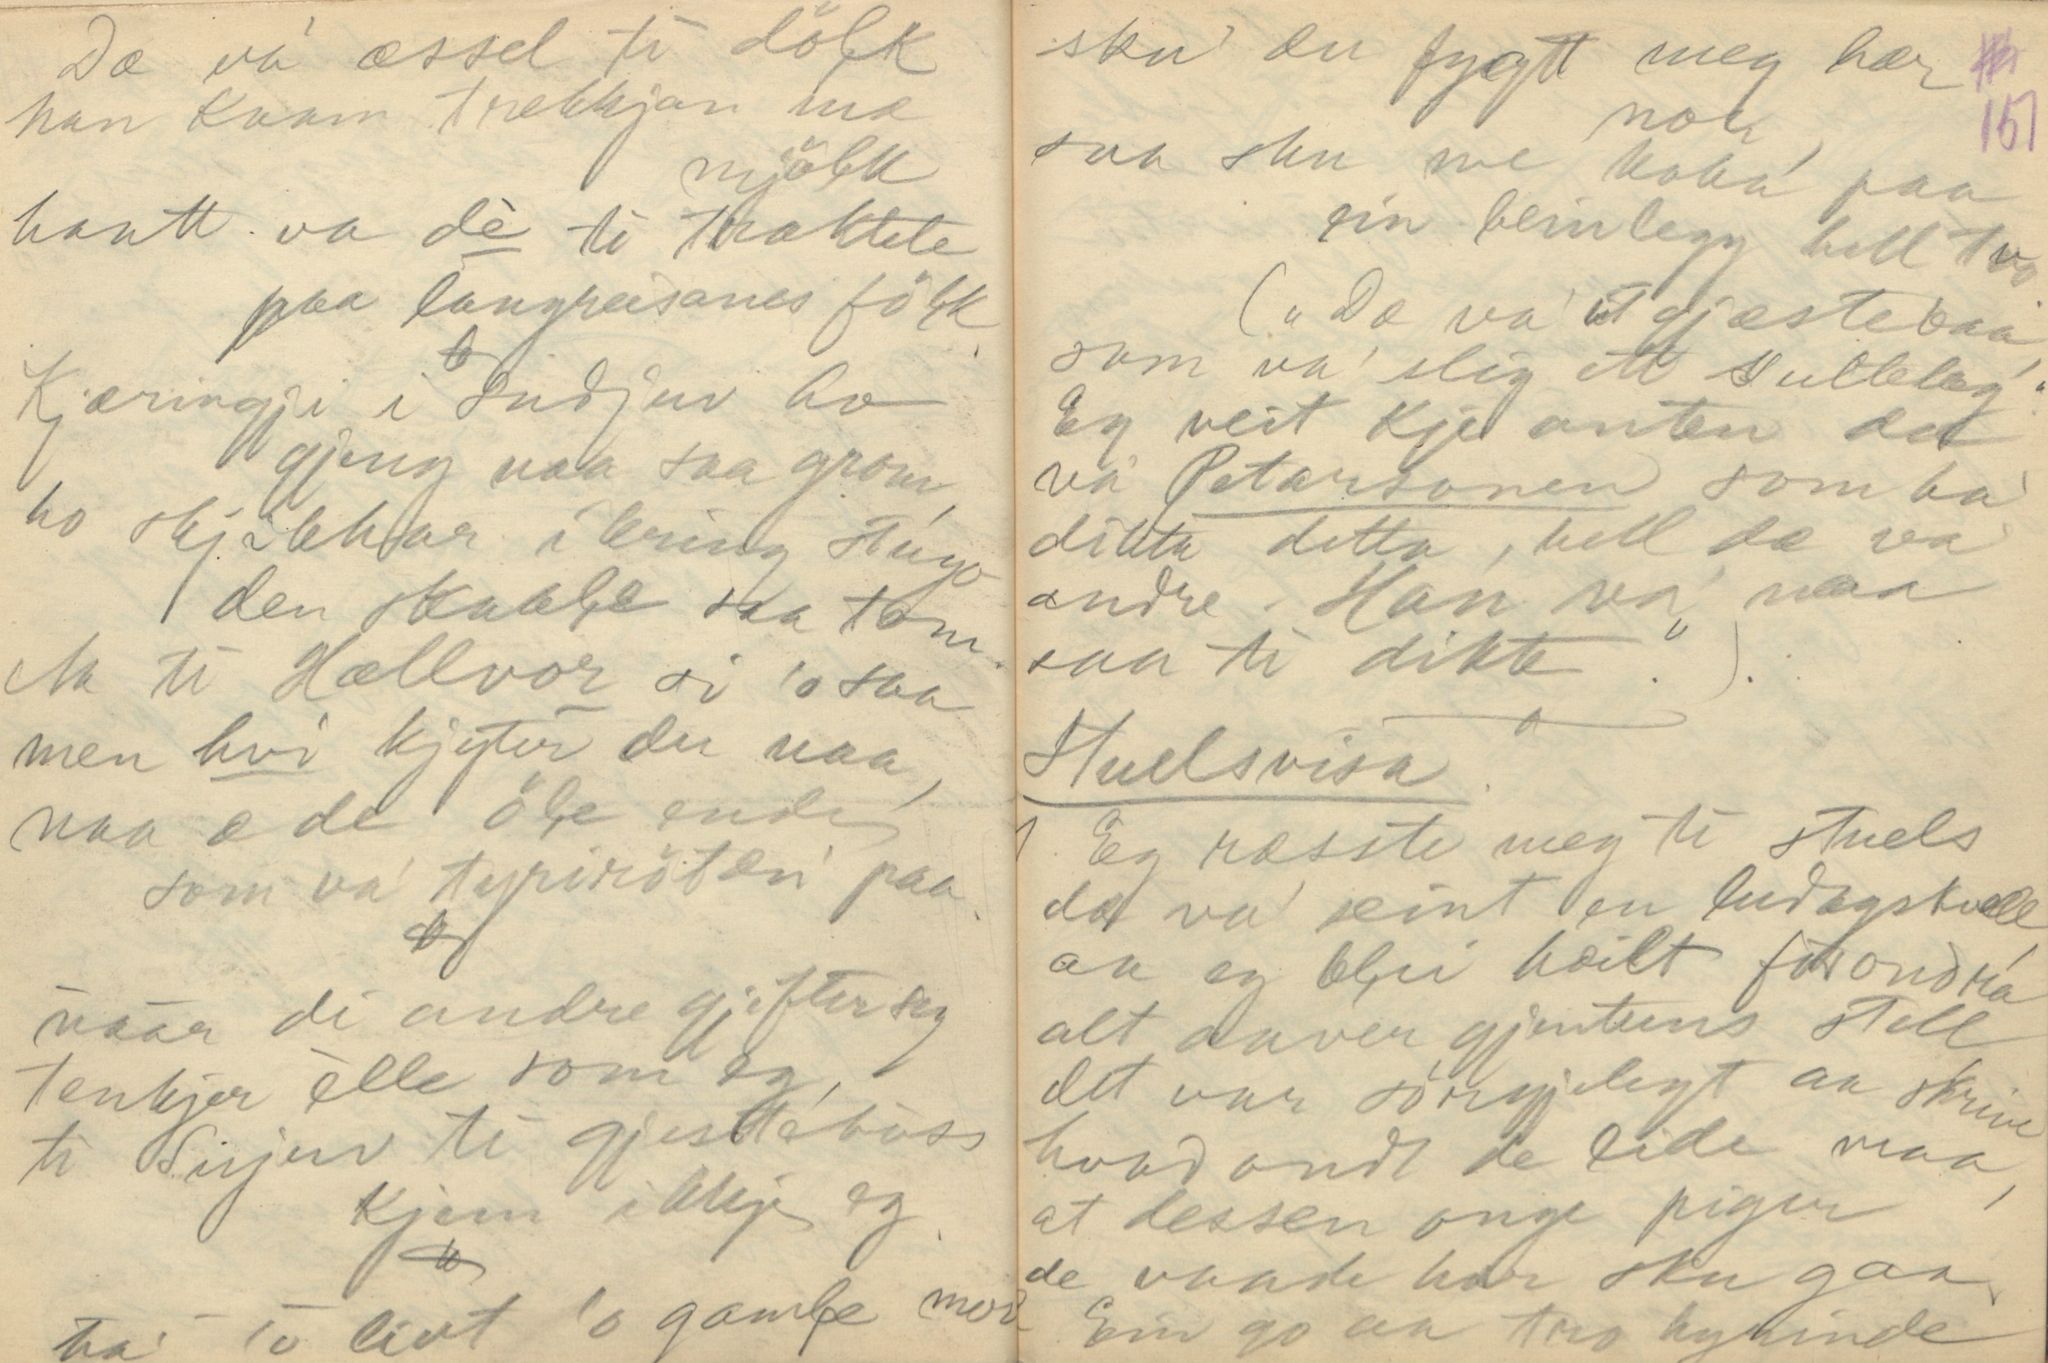 Dæ va' æssel te dölk
han kaam trekkjan mæ
mjölk
haatt va dè te traktele
paa langreisanes fölk.
Kjæringji i Sudjuv ho
gjeng naa saa grom,
ho skjökkar ikring stugo
den skaale saa tom.
Aa te Hællvor si 'o saa
men hvi kjyter du naa,
naa æ de öle ende
som va' tyrirötæn paa.
naar di andre gjifter seg
tenkjer èlle som eg,
te Sirjuv te gjesteboss
kjem ikkje eg.
ha' 'o livt 'o gamle mor
sku' du fygtt meg hær
nor,
saa sku me koka' paa
ein beinlegg hell tvo
("Dæ va' it gjæstebaa,
som va' slig itt sulleleg."
Eg veit kje anten dæ
va' Petarsonen som ha'
dikta detta, hell dæ va
andre. Han va' naa
saa te dikte").
Stuelsvisa.
1. Eg ræsste meg te stuels
dæ va' seint en ludagskvell
aa eg blei heilt forondra
alt aaver gjentuns stell
det var sörgjelegt aa skrive
hvad ondt de lide maa,
at dessen onge piger
de vaade her sku gaa.
Ein go aa tro kyninde
151